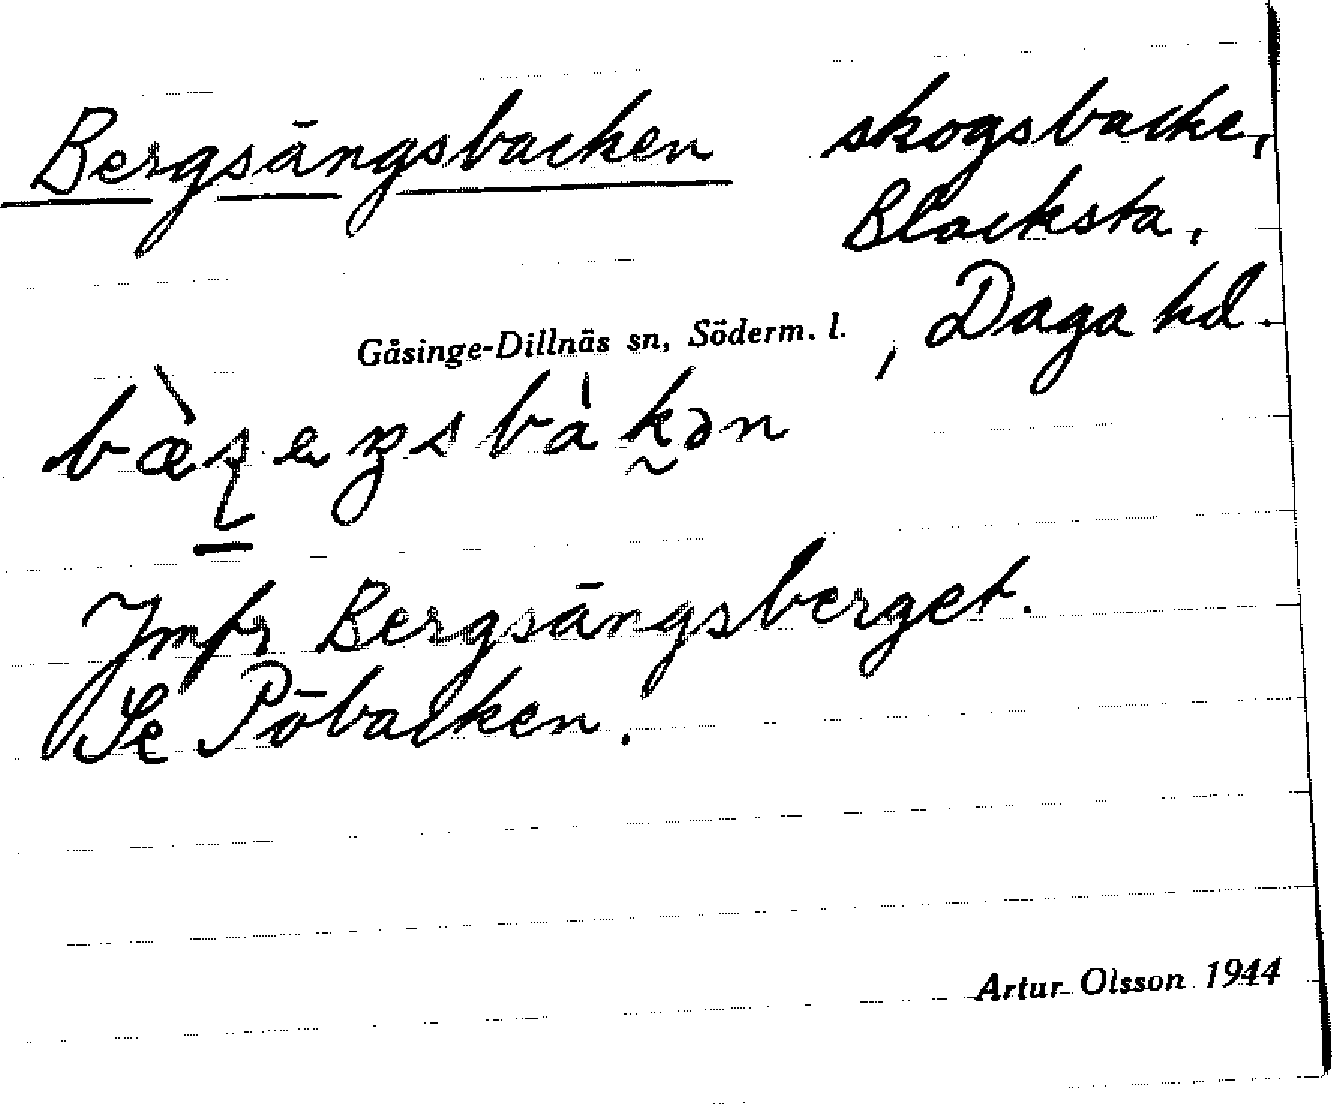 Bergsängsbacken skogsbacke,
Blacksta,
Gåsinge-Dillnäs sn, Söderm. l. , Daga hd.
Jmfr Bergsängsberget.
Se Pöbacken.
Artur Olsson 1944